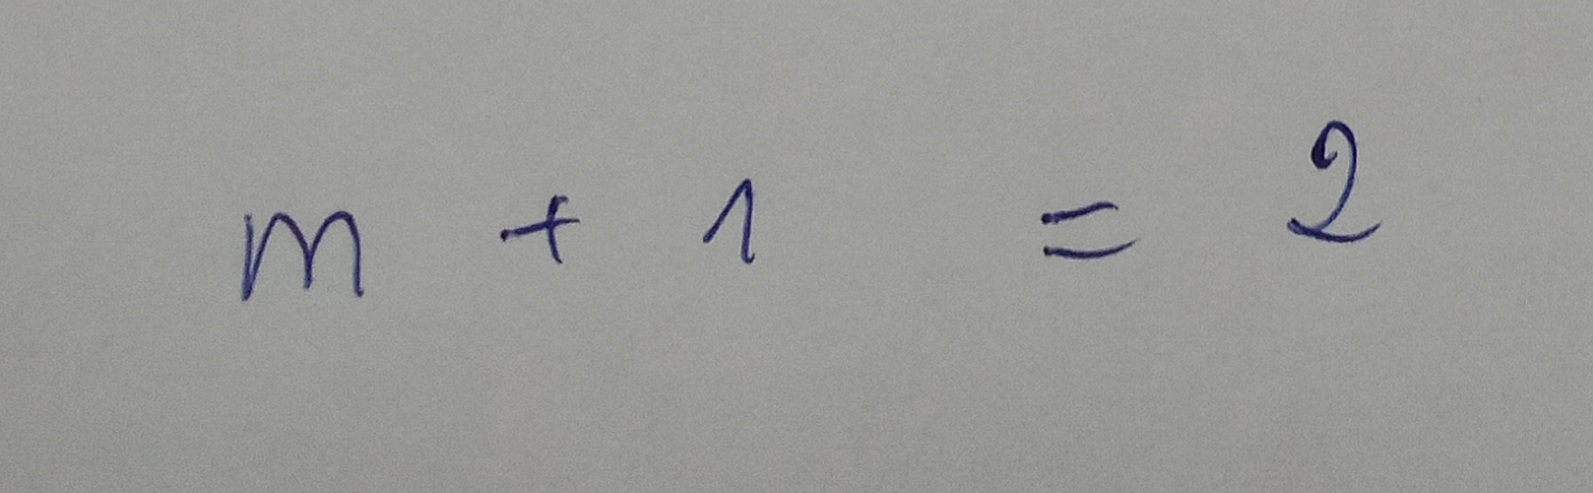 m + 1 = 2